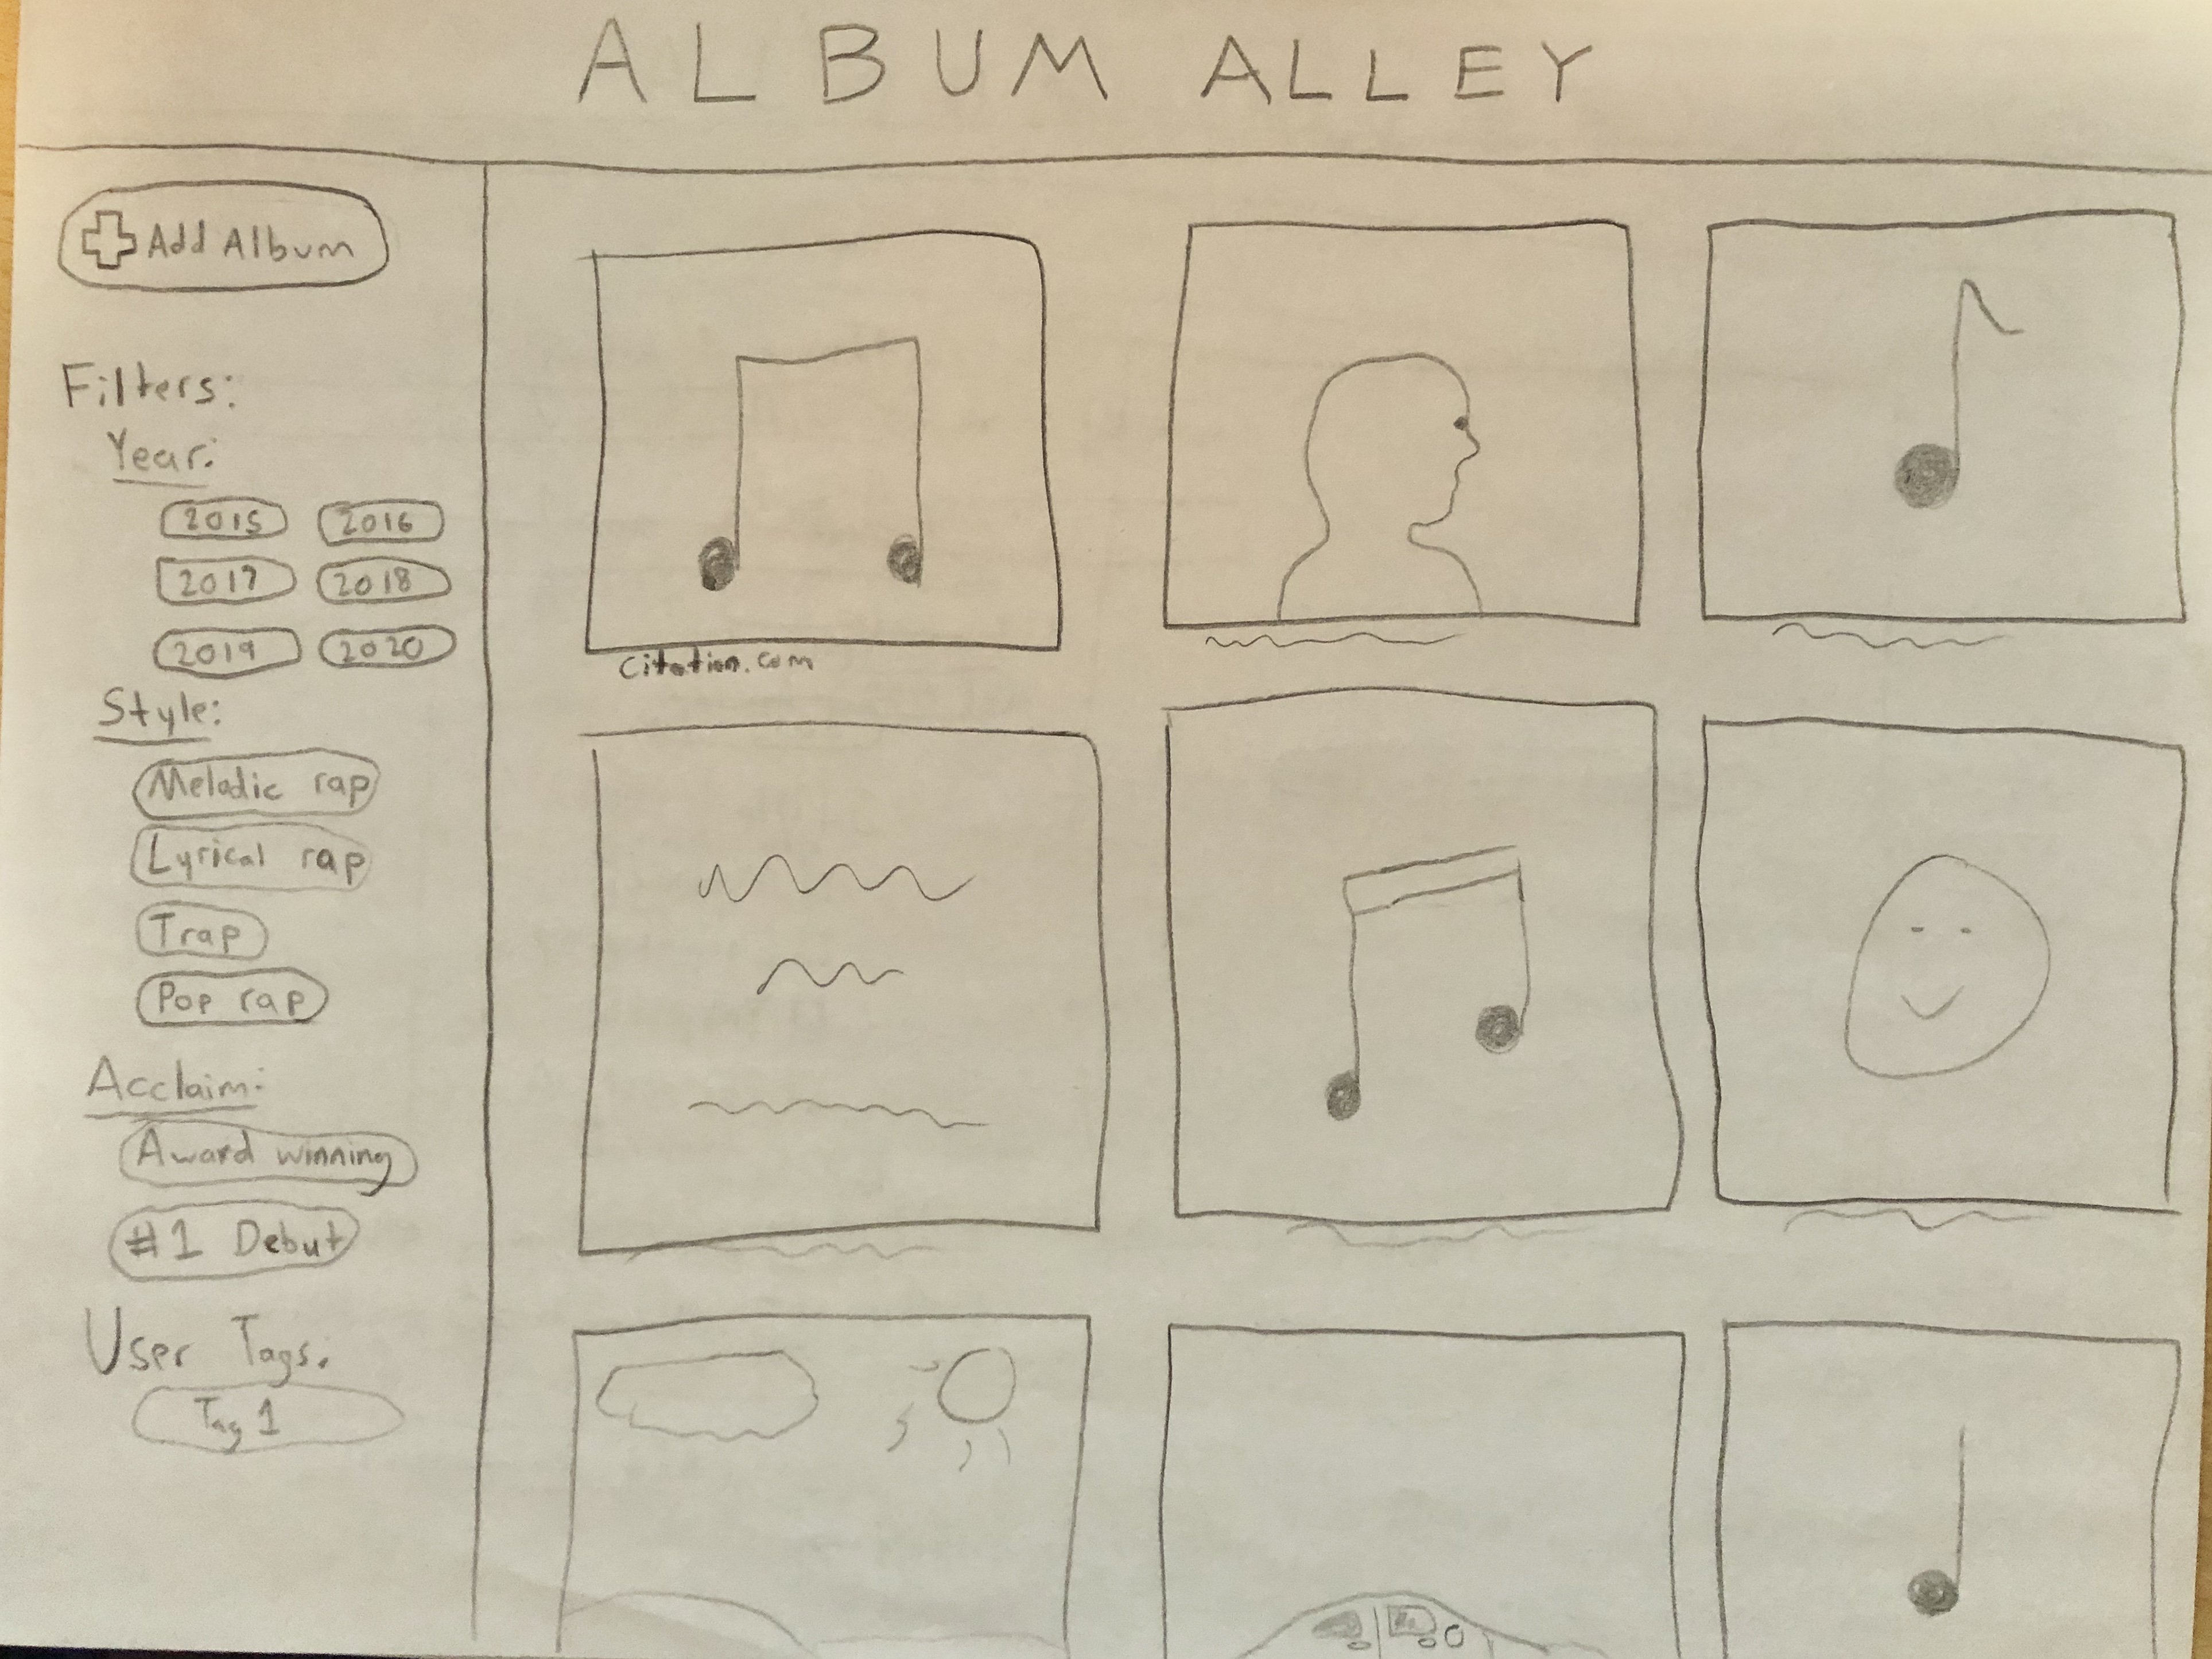 ALBUM ALLEY
Add Album
Filters:
Year:
2015 2016
2017 2018
2019 2020
Style:
Melodic rap
Lyrical rap
Trap
Pop rap
Acclaim:
Award winning
#1 Debut
User Tags:
Tag 1
Citation.com